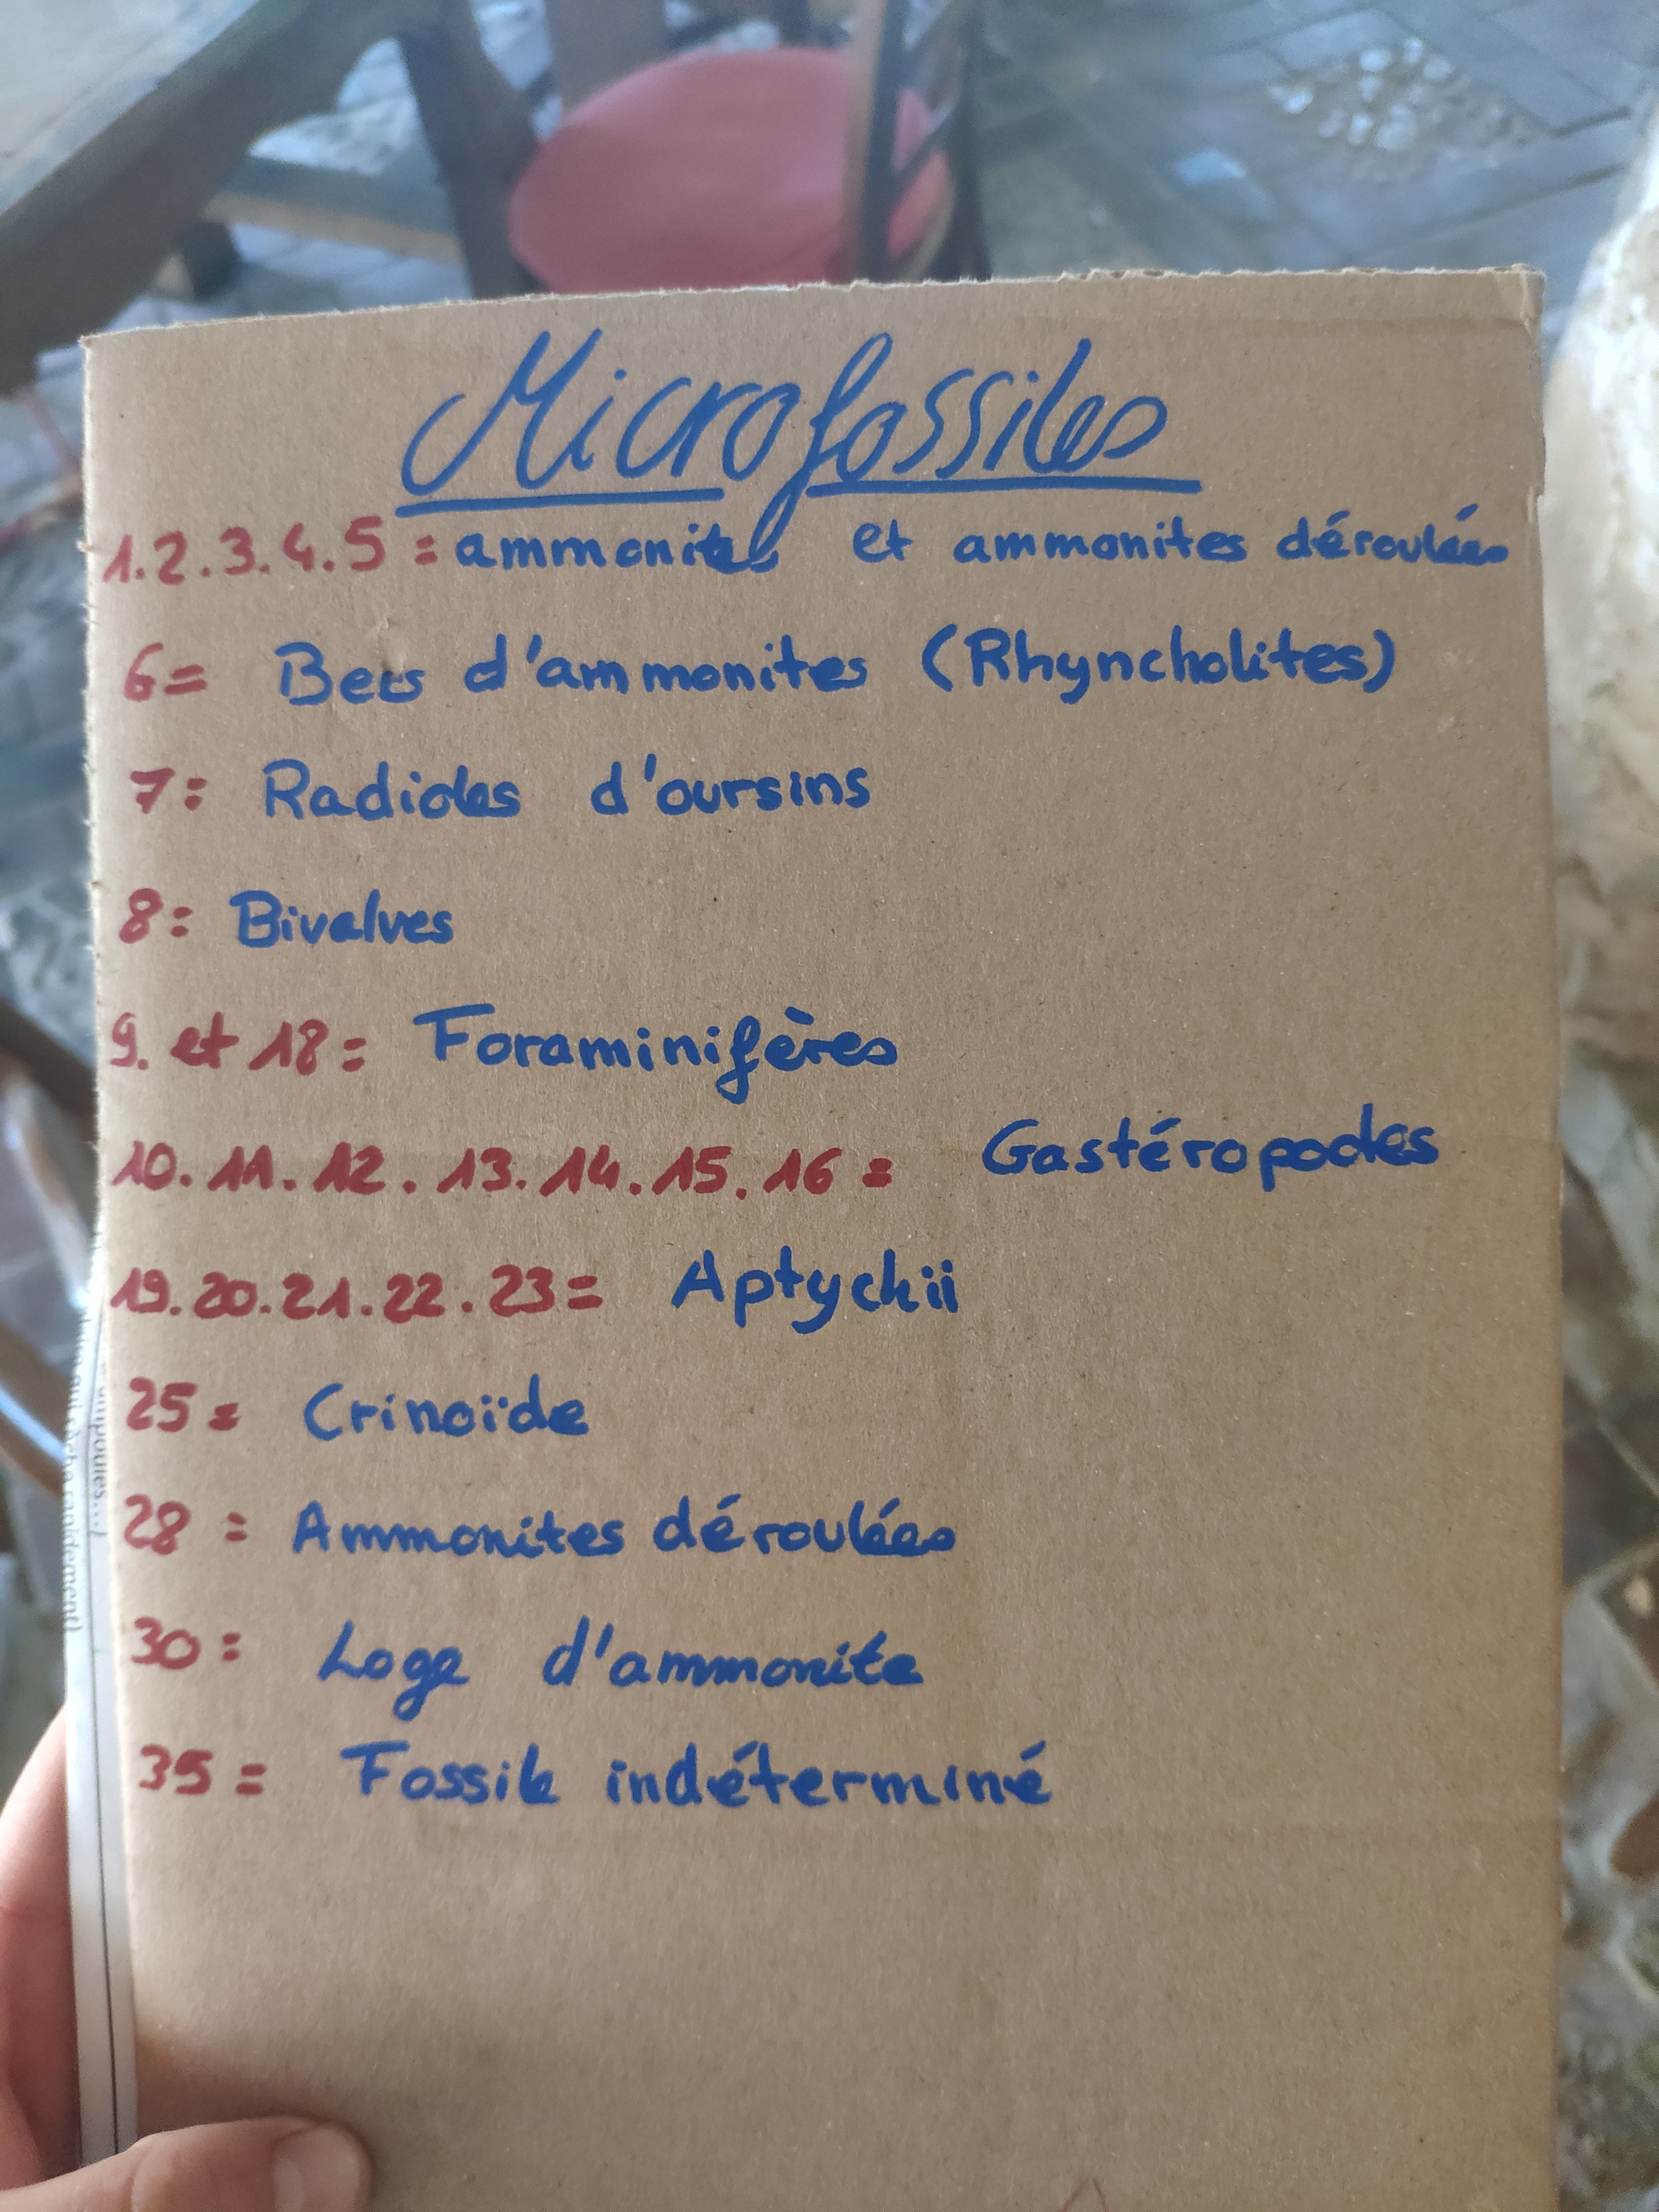 Microfossiles
1.2.3.4.5 = ammonites et ammonites déroulées
6= Becs d'ammonites (Rhyncholites)
7= Radioles d'oursins
8= Bivalves
9. et 18= Foraminifères
10.11.12.13.14.15.16= Gastéropodes
19.20.21.22.23= Aptychii
25= Crinoïde
28= Ammonites déroulées
30= Loge d'ammonite
35= Fossile indéterminé